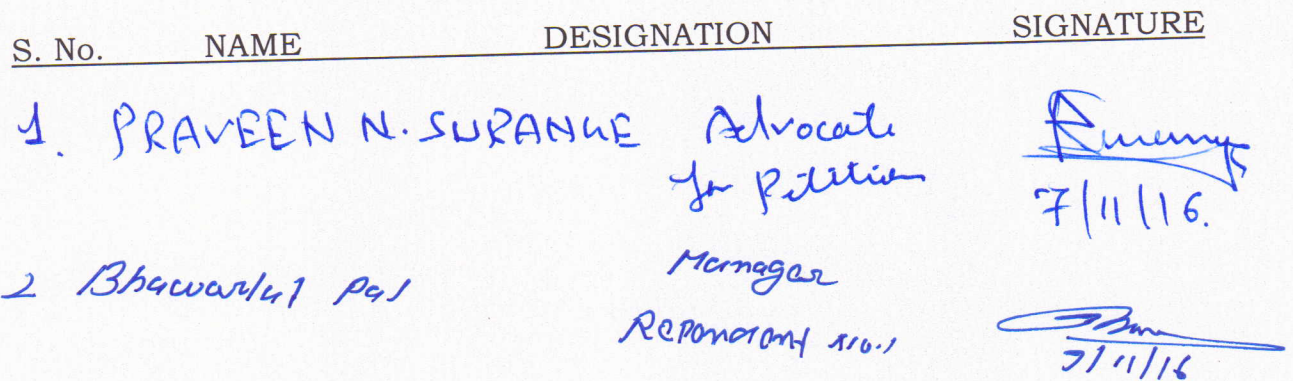 S. No. NAME DESIGNATION SIGNATURE
1. PRAVEEN N. SURANGE Advocate
for Petition
7/11/16.
2 Bhawarlal Pal Manager
Repondont No.1
7/11/16